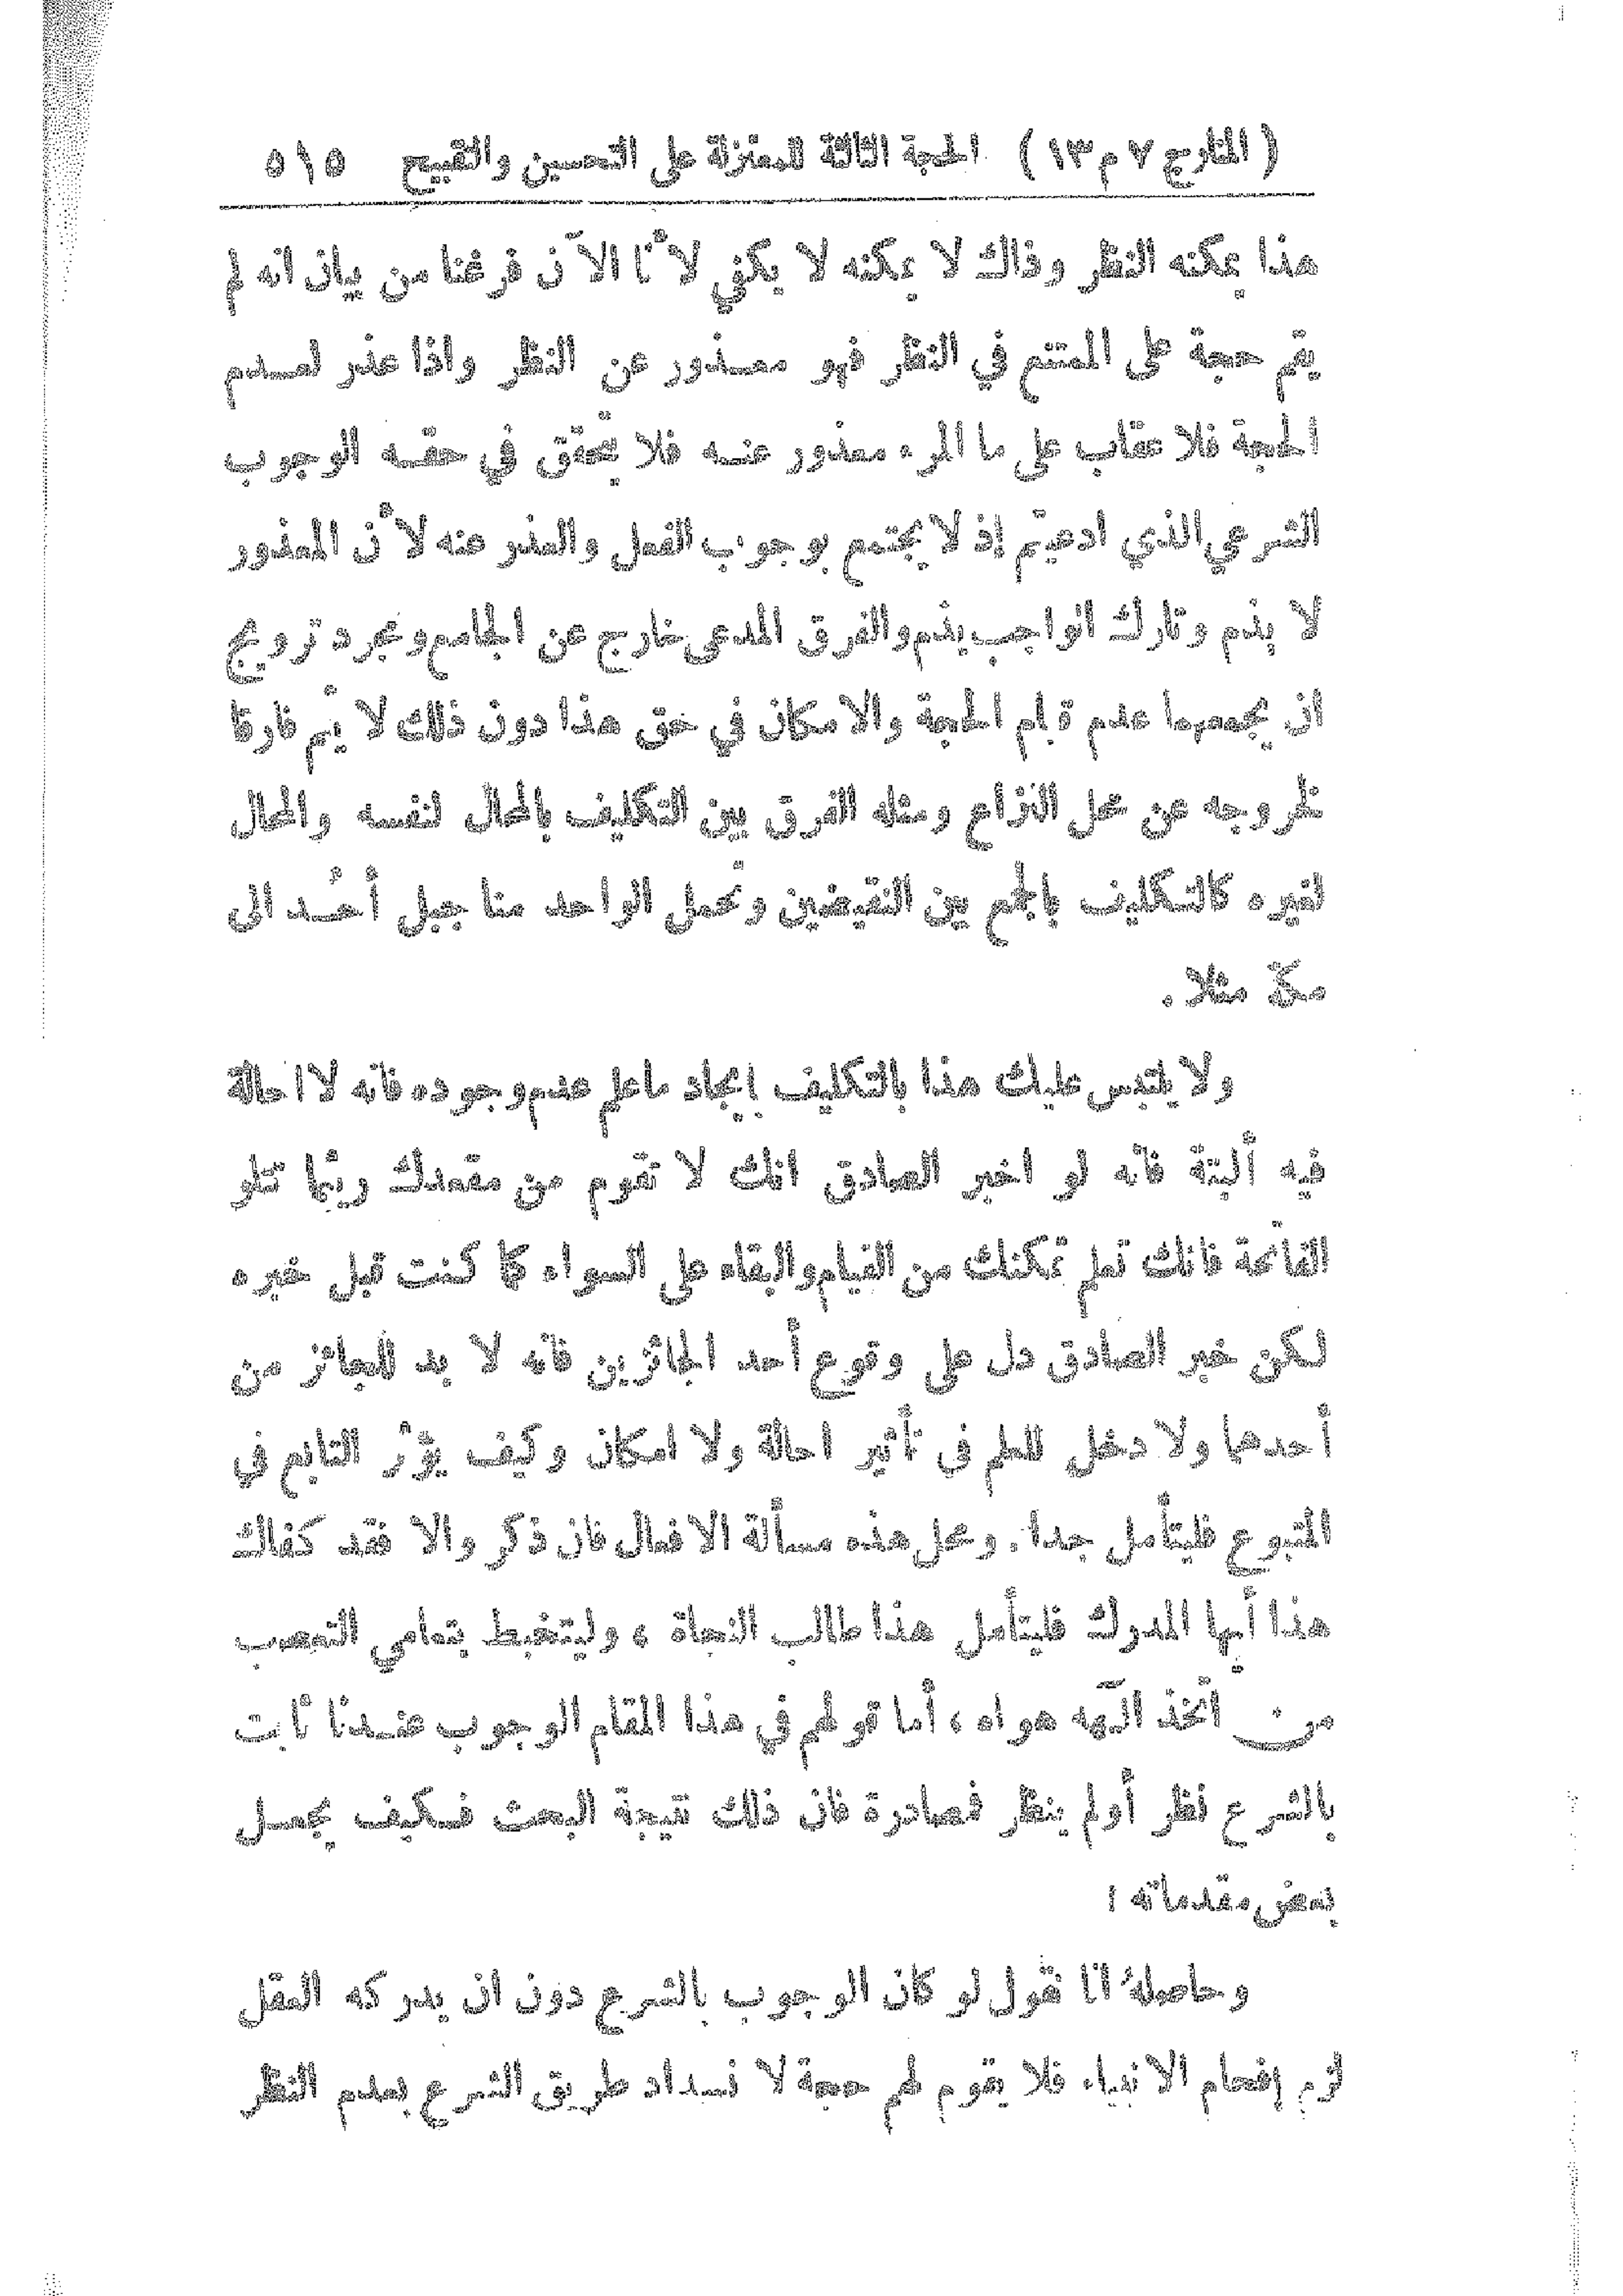 ( المنار ج ٧ م ١٣ ) الحجة الثالثة للمعتزلة على التحسين والتقبيح ٥١٥
هذا يمكنه النظر وذاك لا يمكنه لا يكفي لأنا الآن فرغنا من بيان انه لم
يقم حجة على الممتنع في النظر فهو معذور عن النظر واذا عذر لعدم
الحجة فلا عقاب على ما المرء معذور عنه فلا يتحقق في حقه الوجوب
الشرعي الذي ادعيتم إذ لا يجتمع وجوب الفعل والعذر عنه لأن المعذور
لا يذم وتارك الواجب يذم والفرق المدعى خارج عن الجامع ومجرد ترويج
ان يجمعهما عدم قيام الحجة والامكان في حق هذا دون ذلك لا يتم فارقا
لخروجه عن محل النزاع ومثله الفرق بين التكليف بالمحال لنفسه والمحال
لغيره كالتكليف بالجمع بين النقيضين وتحمل الواحد منا جبل أحُد الى
مكة مثلا .
ولا يلتبس عليك هذا بالتكليف إيجاد ما علم عدم وجوده فانه لا احالة
فيه ألبتة فانه لو اخبر الصادق انك لا تقوم من مقعدك ريثما تتلو
الفاتحة فانك تعلم تمكنك من القيام والبقاء على السواء كما كنت قبل خبره
لكن خبر الصادق دل على وقوع أحد الجائزين فانه لا بد للجائز من
أحدهما ولا دخل للعلم في تأثير احالة ولا امكان وكيف يؤثر التابع في
المتبوع فليتأمل جدا. ومحل هذه مسألة الافعال فان ذكر والا فقد كفاك
هذا أيها المدرك فليتأمل هذا طالب النجاة ، وليتخبط بتعامي التعصب
من اتخذ الٓهه هواه ، أما قولهم في هذا المقام الوجوب عندنا ثابت
بالشرع نظر أو لم ينظر فمصادرة فان ذلك نتيجة البحث فكيف يجعل
بعض مقدماته ؛
وحاصله انا نقول لو كان الوجوب بالشرع دون ان يدركه العقل
لزم إفحام الانبياء فلا يقوم لهم حجة لا نسداد طريق الشرع بعدم النظر